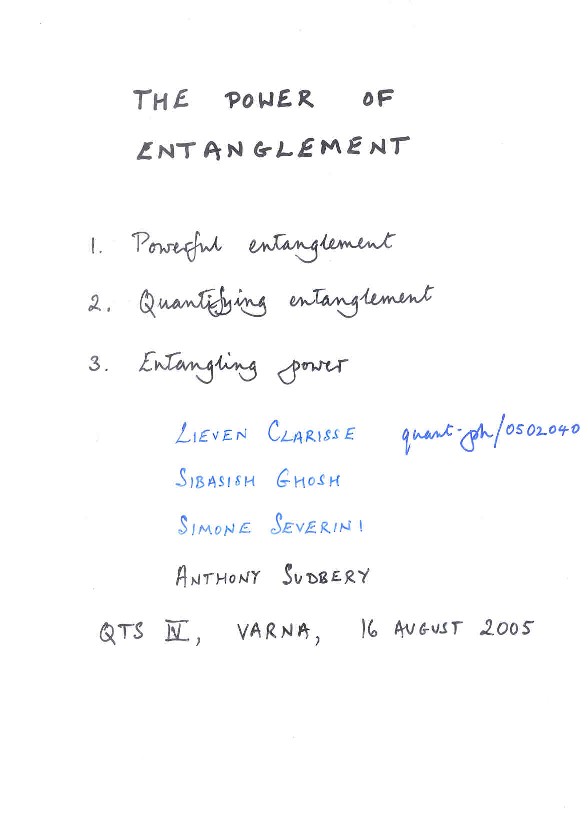 THE POWER OF
ENTANGLEMENT
1. Powerful entanglement
2. Quantifying entanglement
3. Entangling power
LIEVEN CLARISSE quant-ph/0502040
SIBASISH GHOSH
SIMONE SEVERINI
ANTHONY SUDBERY
QTS IV, VARNA, 16 AUGUST 2005